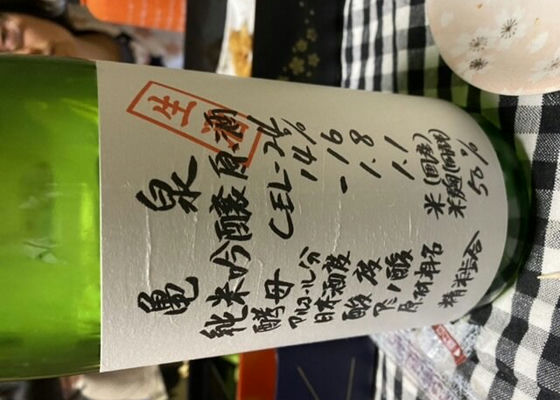 生酒
亀泉
純米吟醸原酒
酵母 CEL-24
アルコール分 14%
日本酒度 -16
酸度 1.8
アミノ酸 1.1
原材料名 米(国産)
米麹(国産米)
精米歩合 50%